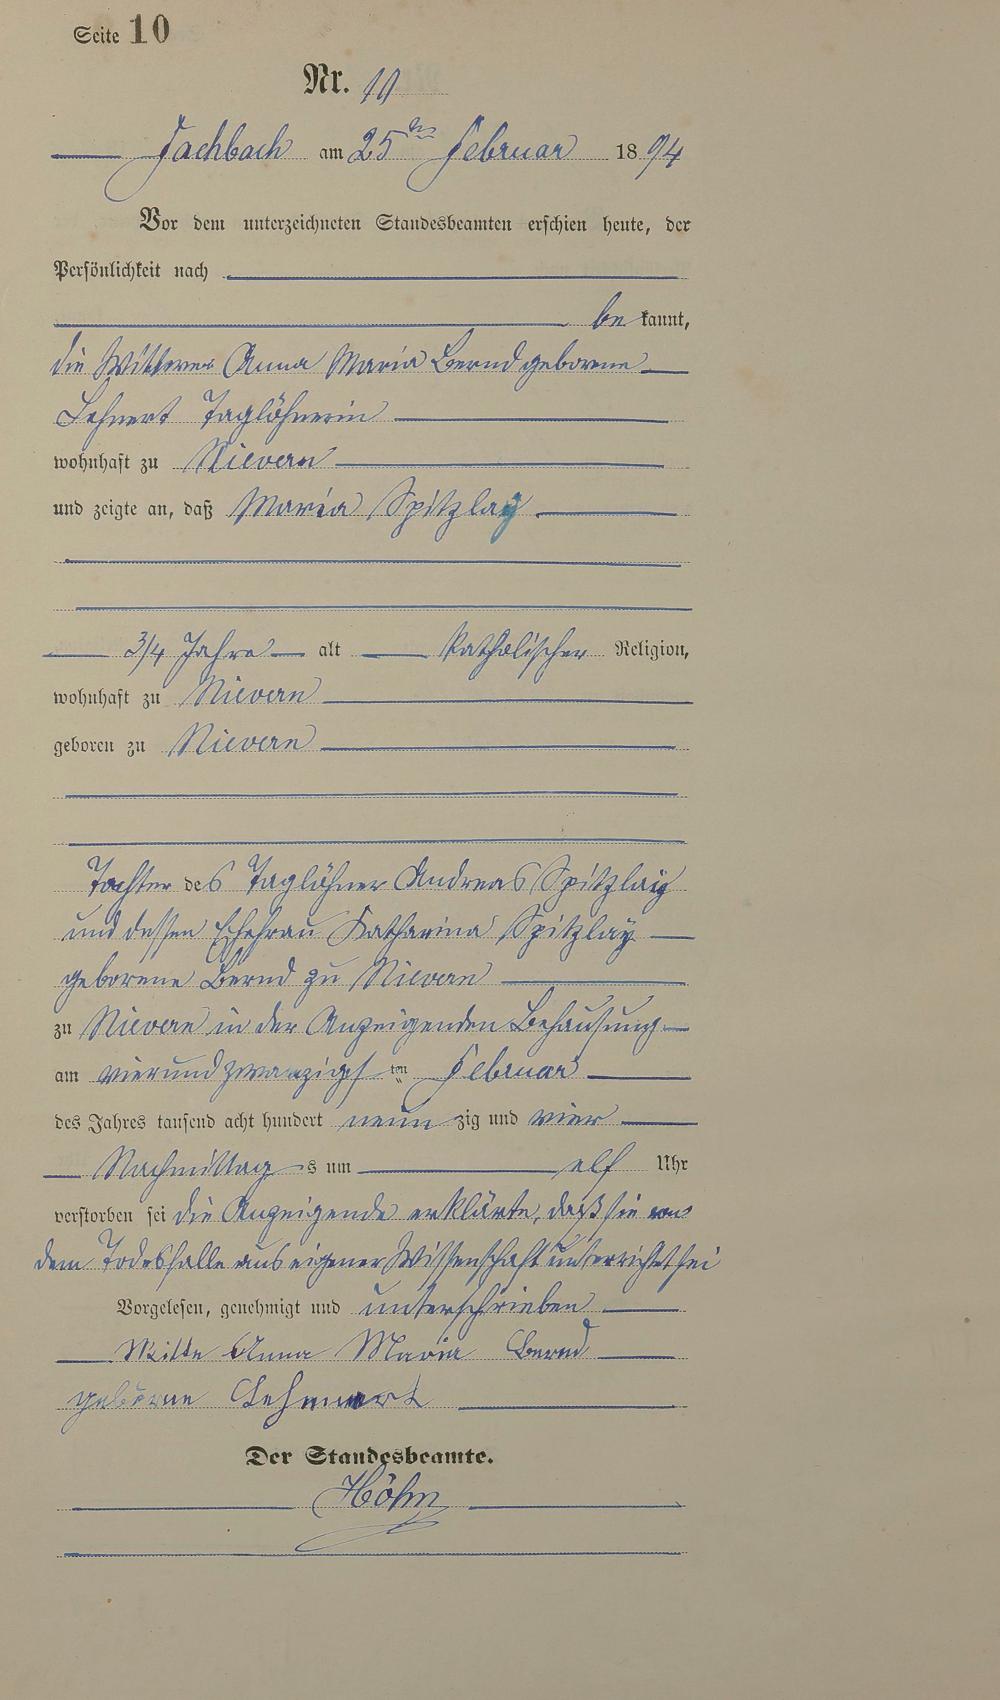 Seite 10
Nr. 10
Fachbach am 25ten Februar 1894
Vor dem unterzeichneten Standesbeamten erschien heute, der
Persönlichkeit nach
bekannt,
die Wittwe Anna Maria Bernd geborene
Lehnert Taglöhnerin
wohnhaft zu Nievern
und zeigte an, daß Maria Spitzlay
3/4 Jahre alt katholischer Religion,
wohnhaft zu Nievern
geboren zu Nievern
Tochter des Taglöhner Andreas Spitzlaig
und dessen Ehefrau Katharina Spitzlay
geborene Bernd zu Nievern
zu Nievern in der Anzeigenden Behausung
am vierundzwanzigsten Februar
des Jahres tausend acht hundert neunzig und vier
Nachmittags um elf Uhr
verstorben sei die Anzeigende erklärte, daß sie von
dem Todesfalle aus eigener Wissenschaft unterrichtet sei
Vorgelesen, genehmigt und unterschrieben
Witte Anna Maria Bernd
geborne Lehnert
Der Standesbeamte.
Höhn